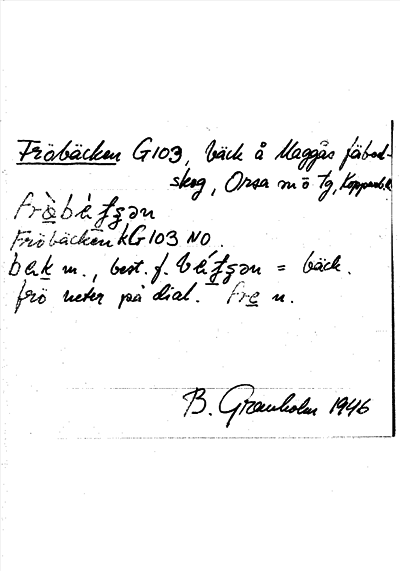 Fröbäcken G103, bäck å Maggås fäbod-
skog, Orsa sn ö tg, Kopparb.l.
Fröbäcken kG103 NO.
bek m., best. f. = bäck.
frö heter på dial. fre n.
B. Granholm 1946